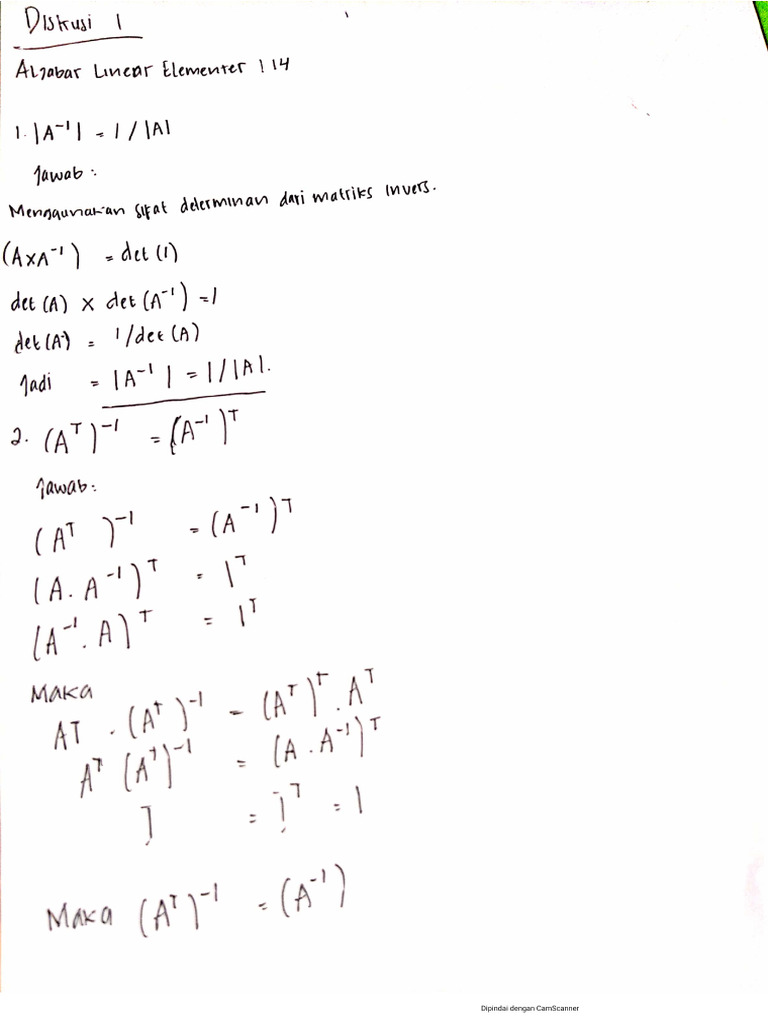 Diskusi 1
Aljabar Linear Elementer 1 14
1. |A⁻¹| = 1 / |A|
Jawab :
Menggunakan sifat determinan dari matriks invers.
(A×A⁻¹) = det (1)
det (A) × det (A⁻¹) = 1
det (A⁻) = 1/det (A)
Jadi = |A⁻¹| = 1/|A|.
2. (Aᵀ)⁻¹ = (A⁻¹)ᵀ
Jawab :
(Aᵀ )⁻¹ = (A⁻¹)ᵀ
(A. A⁻¹)ᵀ = Iᵀ
(A⁻¹. A)ᵀ = Iᵀ
Maka
AT . (Aᵀ)⁻¹ = (Aᵀ)ᵀ. Aᵀ
Aᵀ (Aᵀ)⁻¹ = (A . A⁻¹)ᵀ
I = Iᵀ = I
Maka (Aᵀ)⁻¹ = (A⁻¹)
Dipindai dengan CamScanner